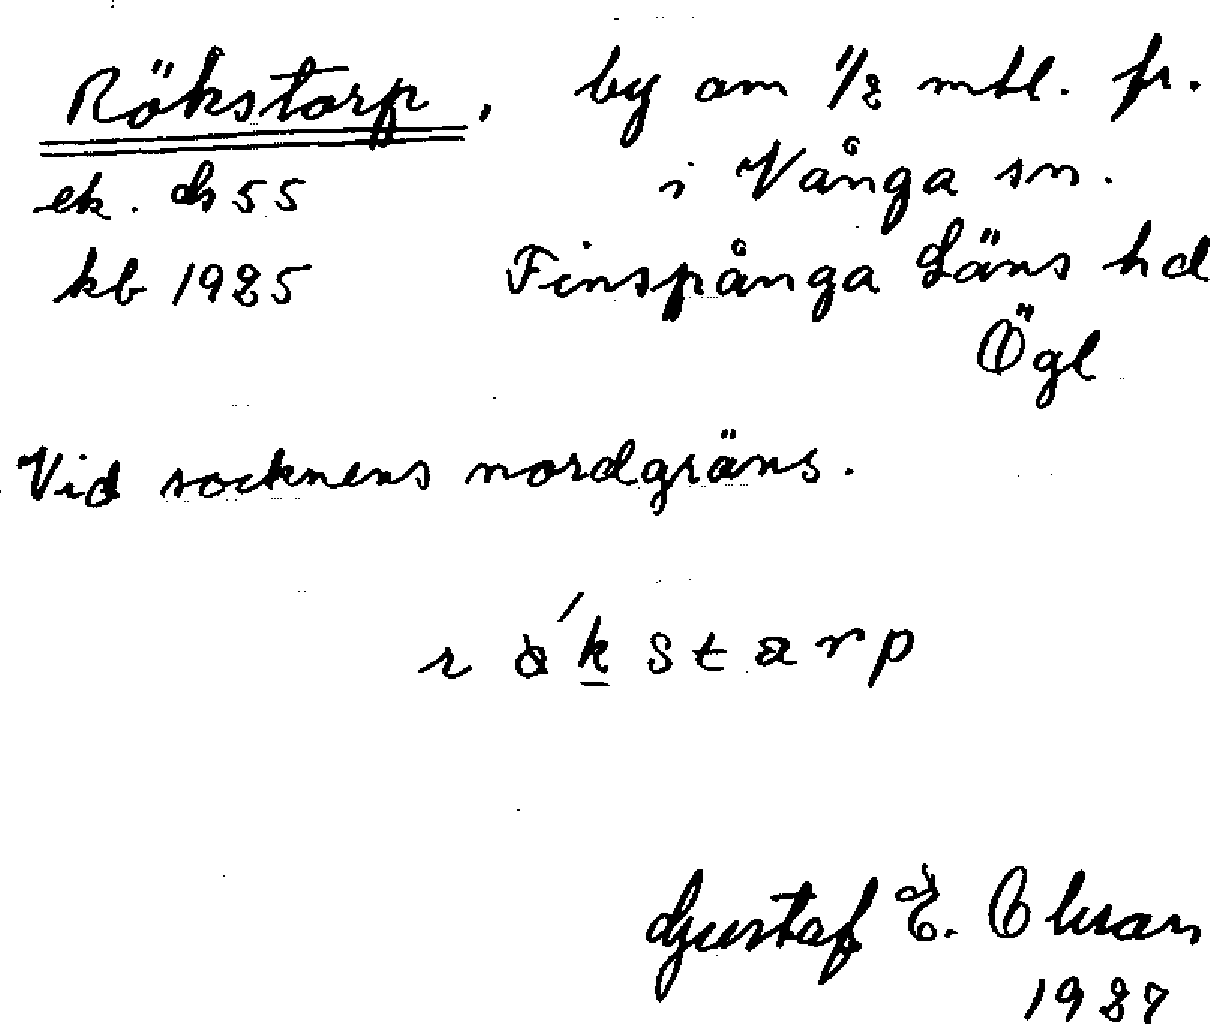 Rökstorp, by om 1/2 mtl. fr.
ek. ds 55 i Vånga sn.
kb 1925 Finspånga Läns hd
Ögl
Vid socknens nordgräns.
Gustaf E. Olsson
1927